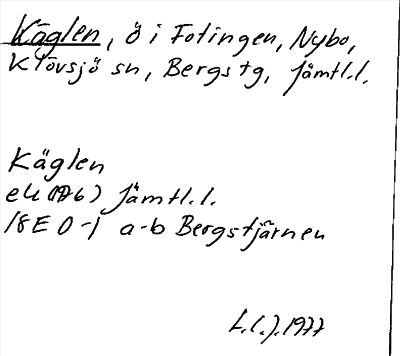 Käglen, ö i Fotingen, Nybo,
Klövsjö sn, Bergs tg, Jämtl.l.
Käglen
ek (1976) Jämtl.l.
18E 0-1 a-b Bergstjärnen
L.C.J. 1977